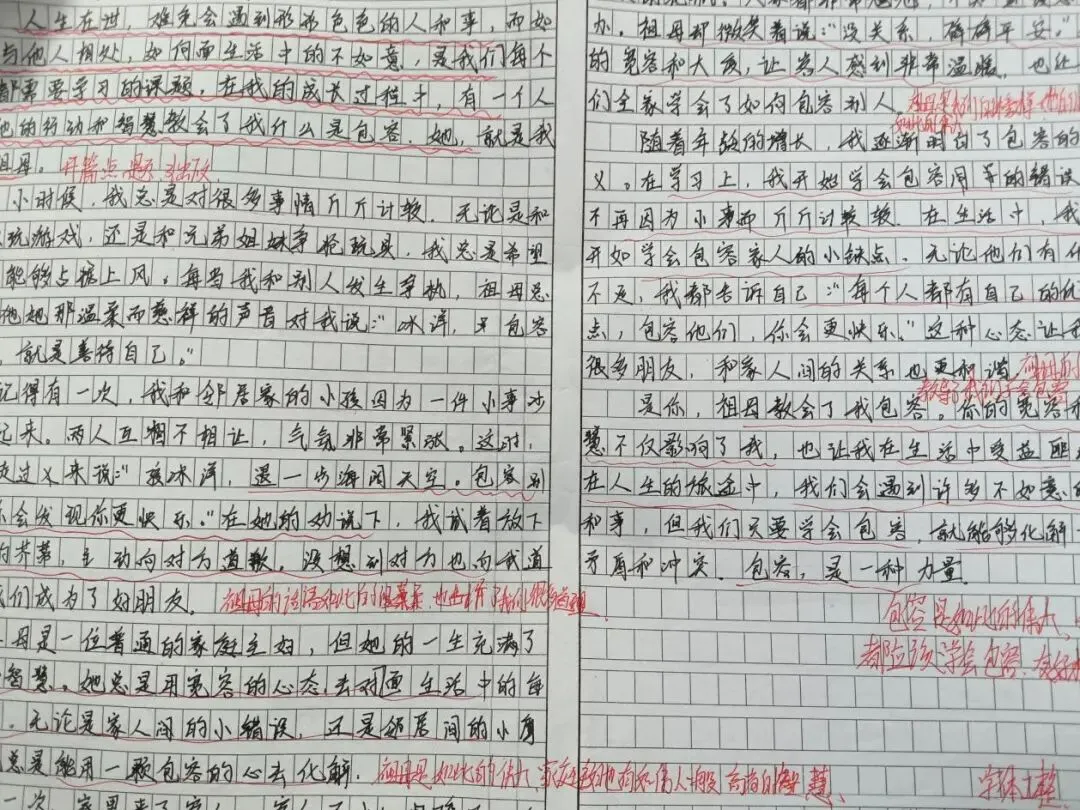 人生在世，难免会遇到形形色色的人和事，而如
与他人相处，如何面生活中的不如意，是我们每个
都需要学习的课题。在我的成长过程中，有一个人
他的行动和智慧教会了我什么是包容。她，就是我
祖母。开篇点题
小时候，我总是对很多事情斤斤计较，无论是和
玩游戏，还是和兄弟姐妹争抢玩具，我总是希望
能够占据上风。每当我和别人发生争执，祖母总
他她那温柔而慈祥的声音对我说："冰洋，包容
，就是善待自己。"
记得有一次，我和邻居家的小孩因为一件小事吵
起来。两人互相不相让，气氛非常紧张。这时，
走过来说："孩冰洋，退一步海阔天空。包容别
会发现你更快乐。"在她的劝说下，我试着放下
的芥蒂，主动向对方道歉。没想到对方也向我道
我们成为了好朋友。祖母的话语
母是一位普通的家庭主妇，但她的一生充满了
智慧。她总是用宽容的心态去对面生活中的每
，无论是家人间的小错误，还是邻居间的小摩
总是能用一颗包容的心去化解。祖母是如此的伟大
一次，家里来了客人
办。祖母却微笑着说："没关系，碎碎平安。"
的宽容和大度，让客人感到非常温暖，也让
们全家学会了如何包容别人。
随着年龄的增长，我逐渐明白了包容的
义。在学习上，我开始学会包容同学的错误
不再因为小事而斤斤计较较。在生活中，我
开始学会包容家人的小缺点，无论他们有什
不足，我都告诉自己："每个人都有自己的优
点，包容他们，你会更快乐。"这种心态让我
很多朋友，和家人间的关系也更和谐。
是你，祖母教会了我包容。你的宽容和
慧不仅影响了我，也让我在生活中受益匪
在人生的旅途中，我们会遇到许多不如意的
和事，但我们只要学会包容，就能够化解
矛盾和冲突。包容，是一种力量。
包容是如此的伟大，
都应该学会包容
字体工整